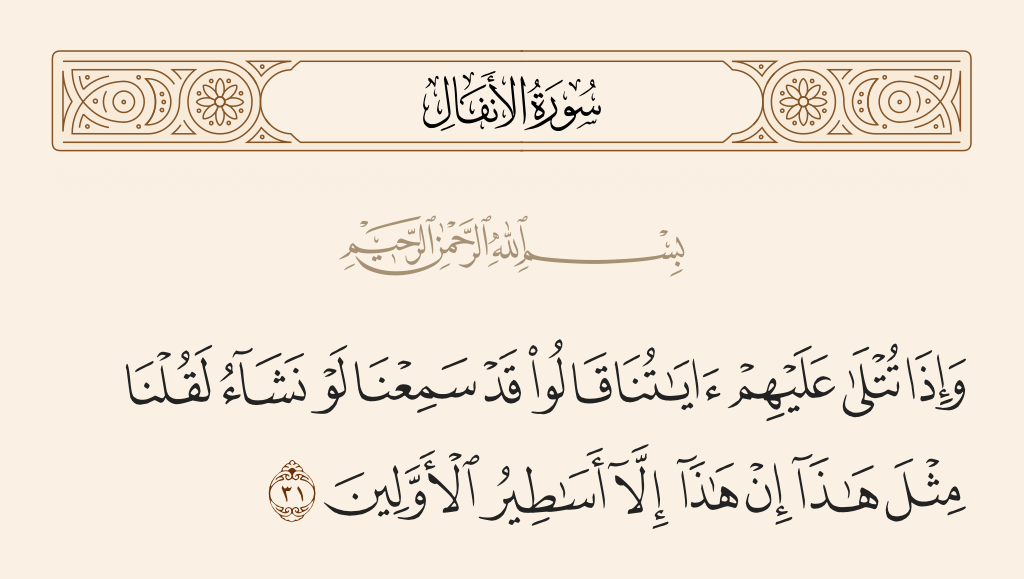 سُورَةُ الأَنفَالِ
بِسْمِ ٱللَّهِ ٱلرَّحْمَٰنِ ٱلرَّحِيمِ
وَإِذَا تُتْلَىٰ عَلَيْهِمْ ءَايَـٰتُنَا قَالُوا۟ قَدْ سَمِعْنَا لَوْ نَشَآءُ لَقُلْنَا
مِثْلَ هَـٰذَآ إِنْ هَـٰذَآ إِلَّآ أَسَـٰطِيرُ ٱلْأَوَّلِينَ ٣١